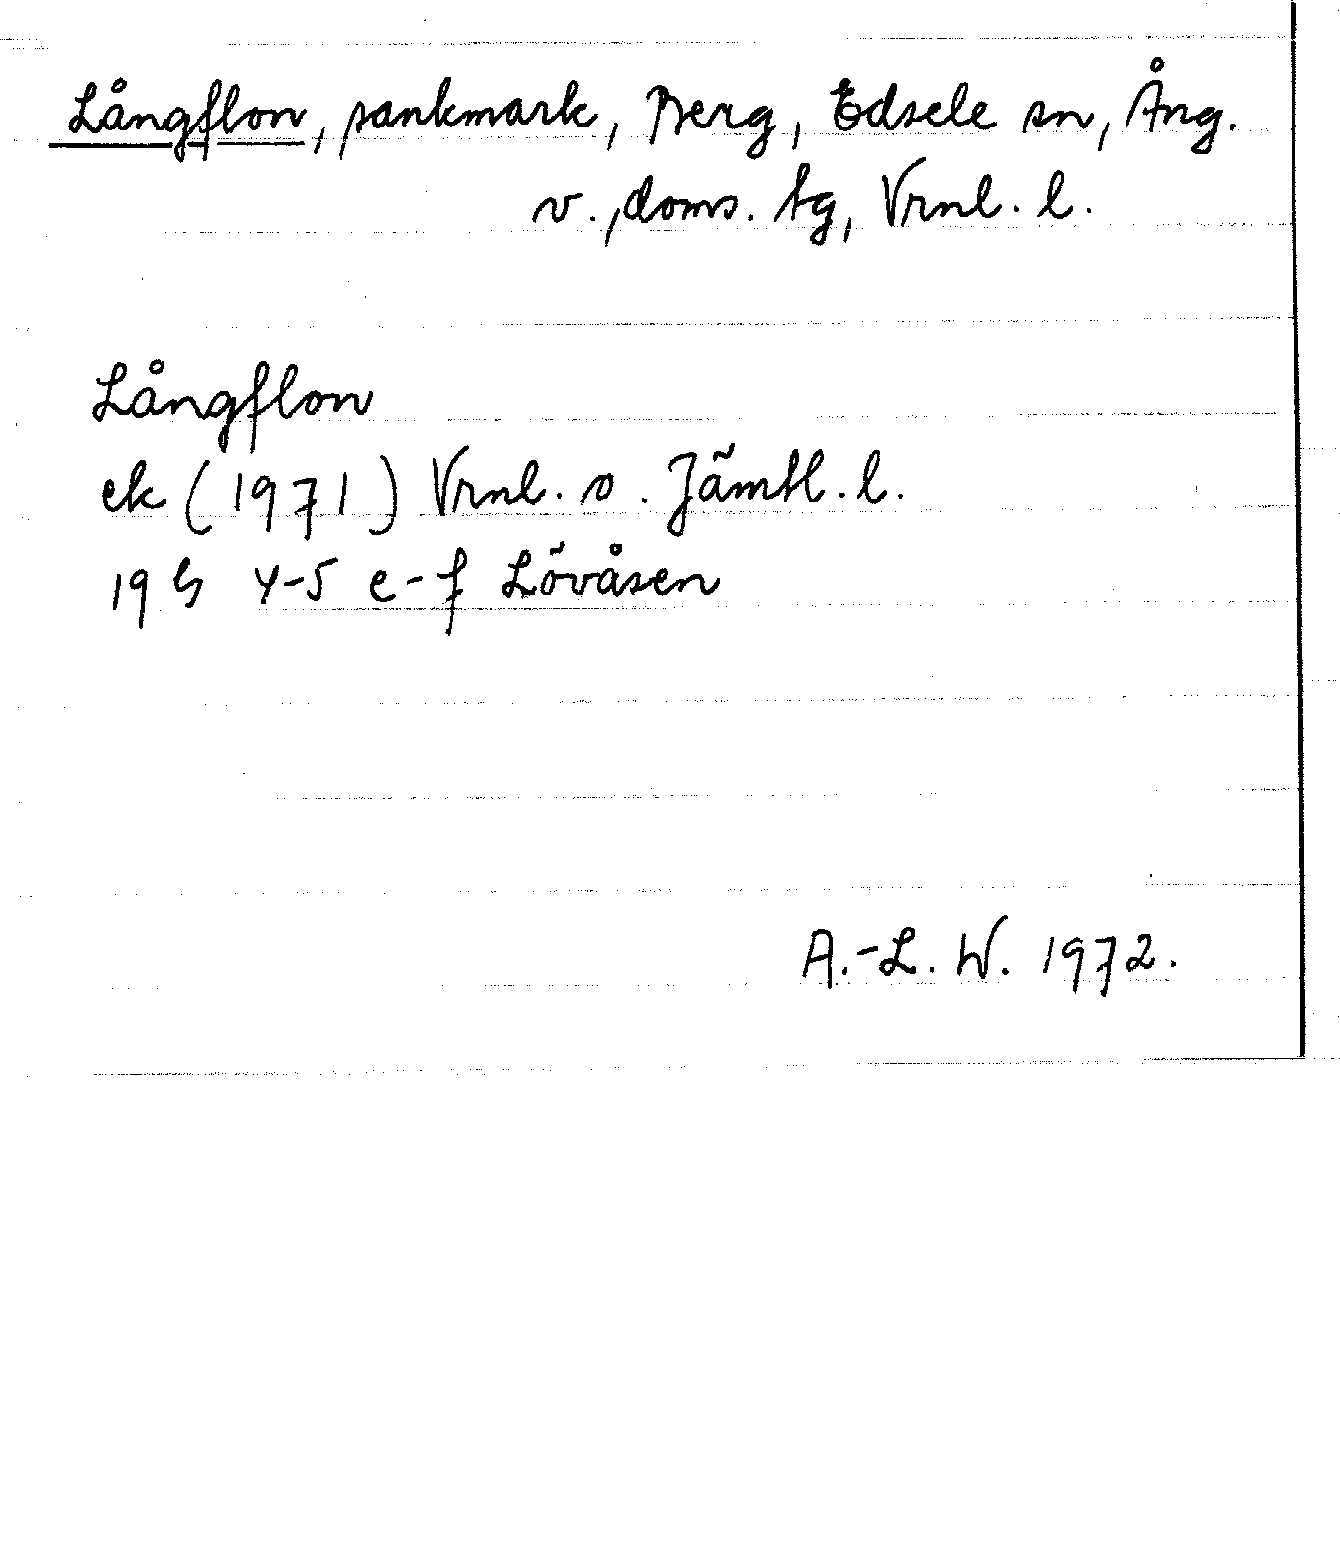 Långflon, sankmark, Berg, Edsele sn, Ång.
v., doms. tg, Vrnl. l.
Långflon
ek (1971) Vrnl. o. Jämtl. l.
19 G 4-5 e-f Lövåsen
A.-L. W. 1972.